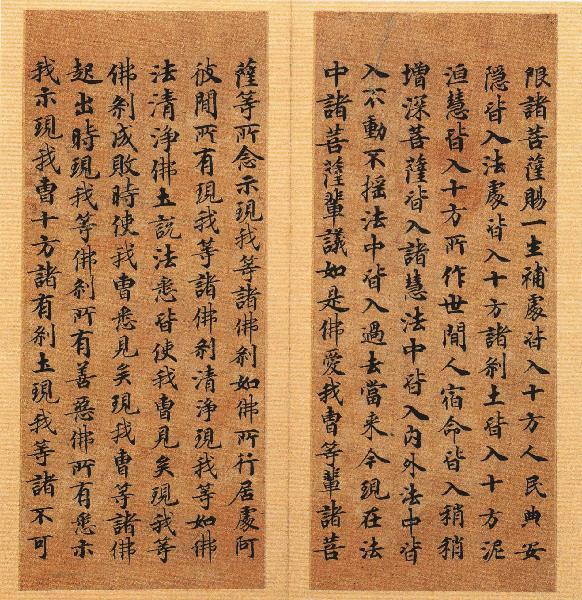 限諸菩薩賜一生補處皆入十方人民典安
隱皆入法處皆入十方諸剎土皆入十方泥
洹慧皆入十方所作世間人宿命皆入稍稍
增深菩薩皆入諸慧法中皆入內外法中皆
入不動不搖法中皆入過去當来今現在法
中諸菩薩輩議如是佛愛我曹等輩諸菩
薩等所念示現我等諸佛剎如佛所行居處阿
彼間所有現我等諸佛剎清淨現我等如佛
法清淨佛土說法悉皆使我曹見矣現我等
佛剎成敗時使我曹悉見矣現我曹等諸佛
起出時現我等佛剎所有善惡佛所有悉示
我示現我曹十方諸有剎土現我等諸不可